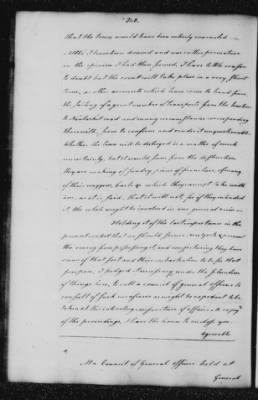 that the Town would have been entirely evacuated
Altho' I have been deceived and was rather premature
in the opinion I had then formed, I have little reason
to doubt but the event will take place in a very short
time, as other accounts which have come to hand since,
the sailing of a great number of Transports from the Harbor
to Nantasket road and many circumstances corresponding
therewith, seem to confirm and render it unquestionable.
Whether the Town will be destroyed is a matter of much
uncertainty, but it would seem from the destruction
they are making of sundry pieces of furniture, of many
of their waggons, carts &c which they cannot take with
'em, as it is said, that it will not, for if they intended
it the whole might be involved in one general ruin.
Holding it of the last importance in the
present contest that we should secure New York & prevent
the enemy from possessing it and conjecturing they have
views of that sort and their embarkation to be for that
purpose, I judged it necessary under the situation
of things here, to call a council of general officers to
consult of such measures as might be expedient to be
taken at this interesting conjuncture of affairs. A copy
of the proceedings, I have the honor to inclose you.
Agreeable
At a Council of General officers held at
General